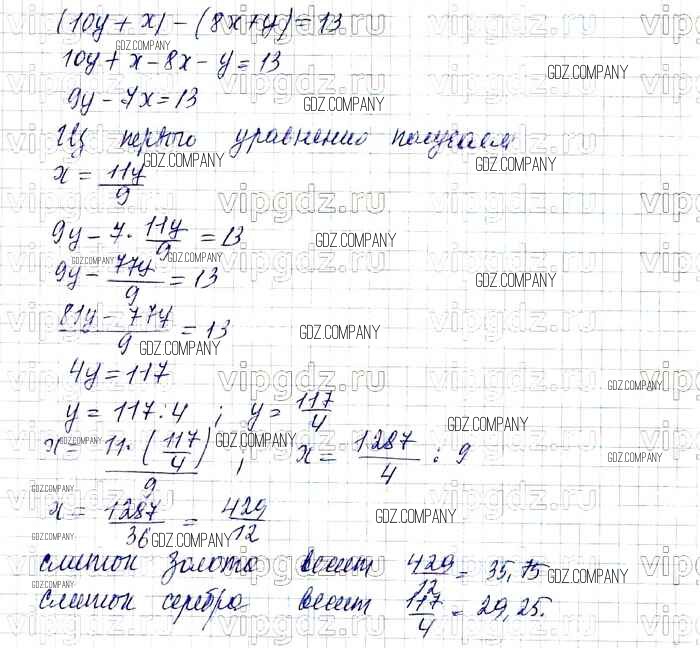 (10y + x) - (8x + y) = 13
10y + x - 8x - y = 13
9y - 7x = 13
Из первого уравнения получаем
x = 11y/9
9y - 7 · 11y/9 = 13
9y - 77y/9 = 13
81y - 77y/9 = 13
4y = 117
y = 117 : 4 ; y = 117/4
x = 11 · (117/4)/9 ; x = 1287/4 : 9
x = 1287/36 = 429/12
слиток золота весит 429/12 = 35,75
слиток серебра весит 117/4 = 29,25.
GDZ.COMPANY
vipgdz.ru